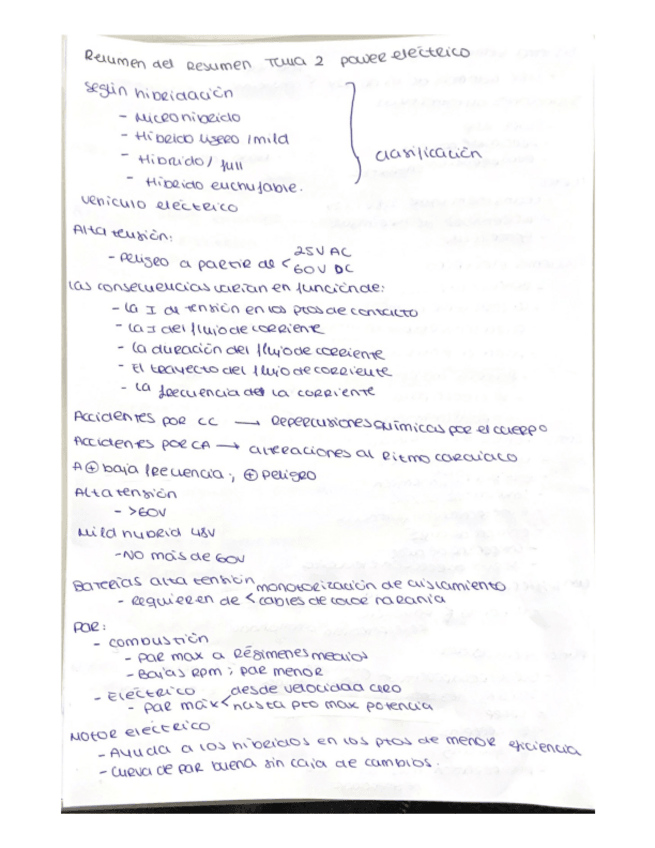 Resumen del resumen Tema 2 power electrico
según hibridación
- Micro hibrido
- Hibrido ligero /mild
- Hibrido / full
- Hibrido enchufable.
clasificación
vehiculo eléctrico
Alta tensión:
- Peligro a partir de < 25V AC
60V DC
las consecuencias varian en función de:
- La I de tensión en los ptos de contacto
- La I del flujo de corriente
- La duración del flujo de corriente
- El trayecto del flujo de corriente
- La frecuencia de la corriente
Accidentes por CC → Repercusiones químicas por el cuerpo
Accidentes por CA → alteraciones al ritmo cardiaco
A ⊕ baja frecuencia, ⊕ peligro
Alta tensión
- >60V
Mild hybrid 48V
- No más de 60V
Baterías alta tensión
- Requieren de < monotorización de aislamiento
cables de color naranja
Par:
- combustión
- Par max a Regimenes medios
- Bajas rpm ; par menor
- Eléctrico
- par máx < desde velocidad cero
hasta pto max potencia
Motor eléctrico
- Ayuda a los hibridos en los ptos de menor eficiencia
- Curva de par buena sin caja de cambios.